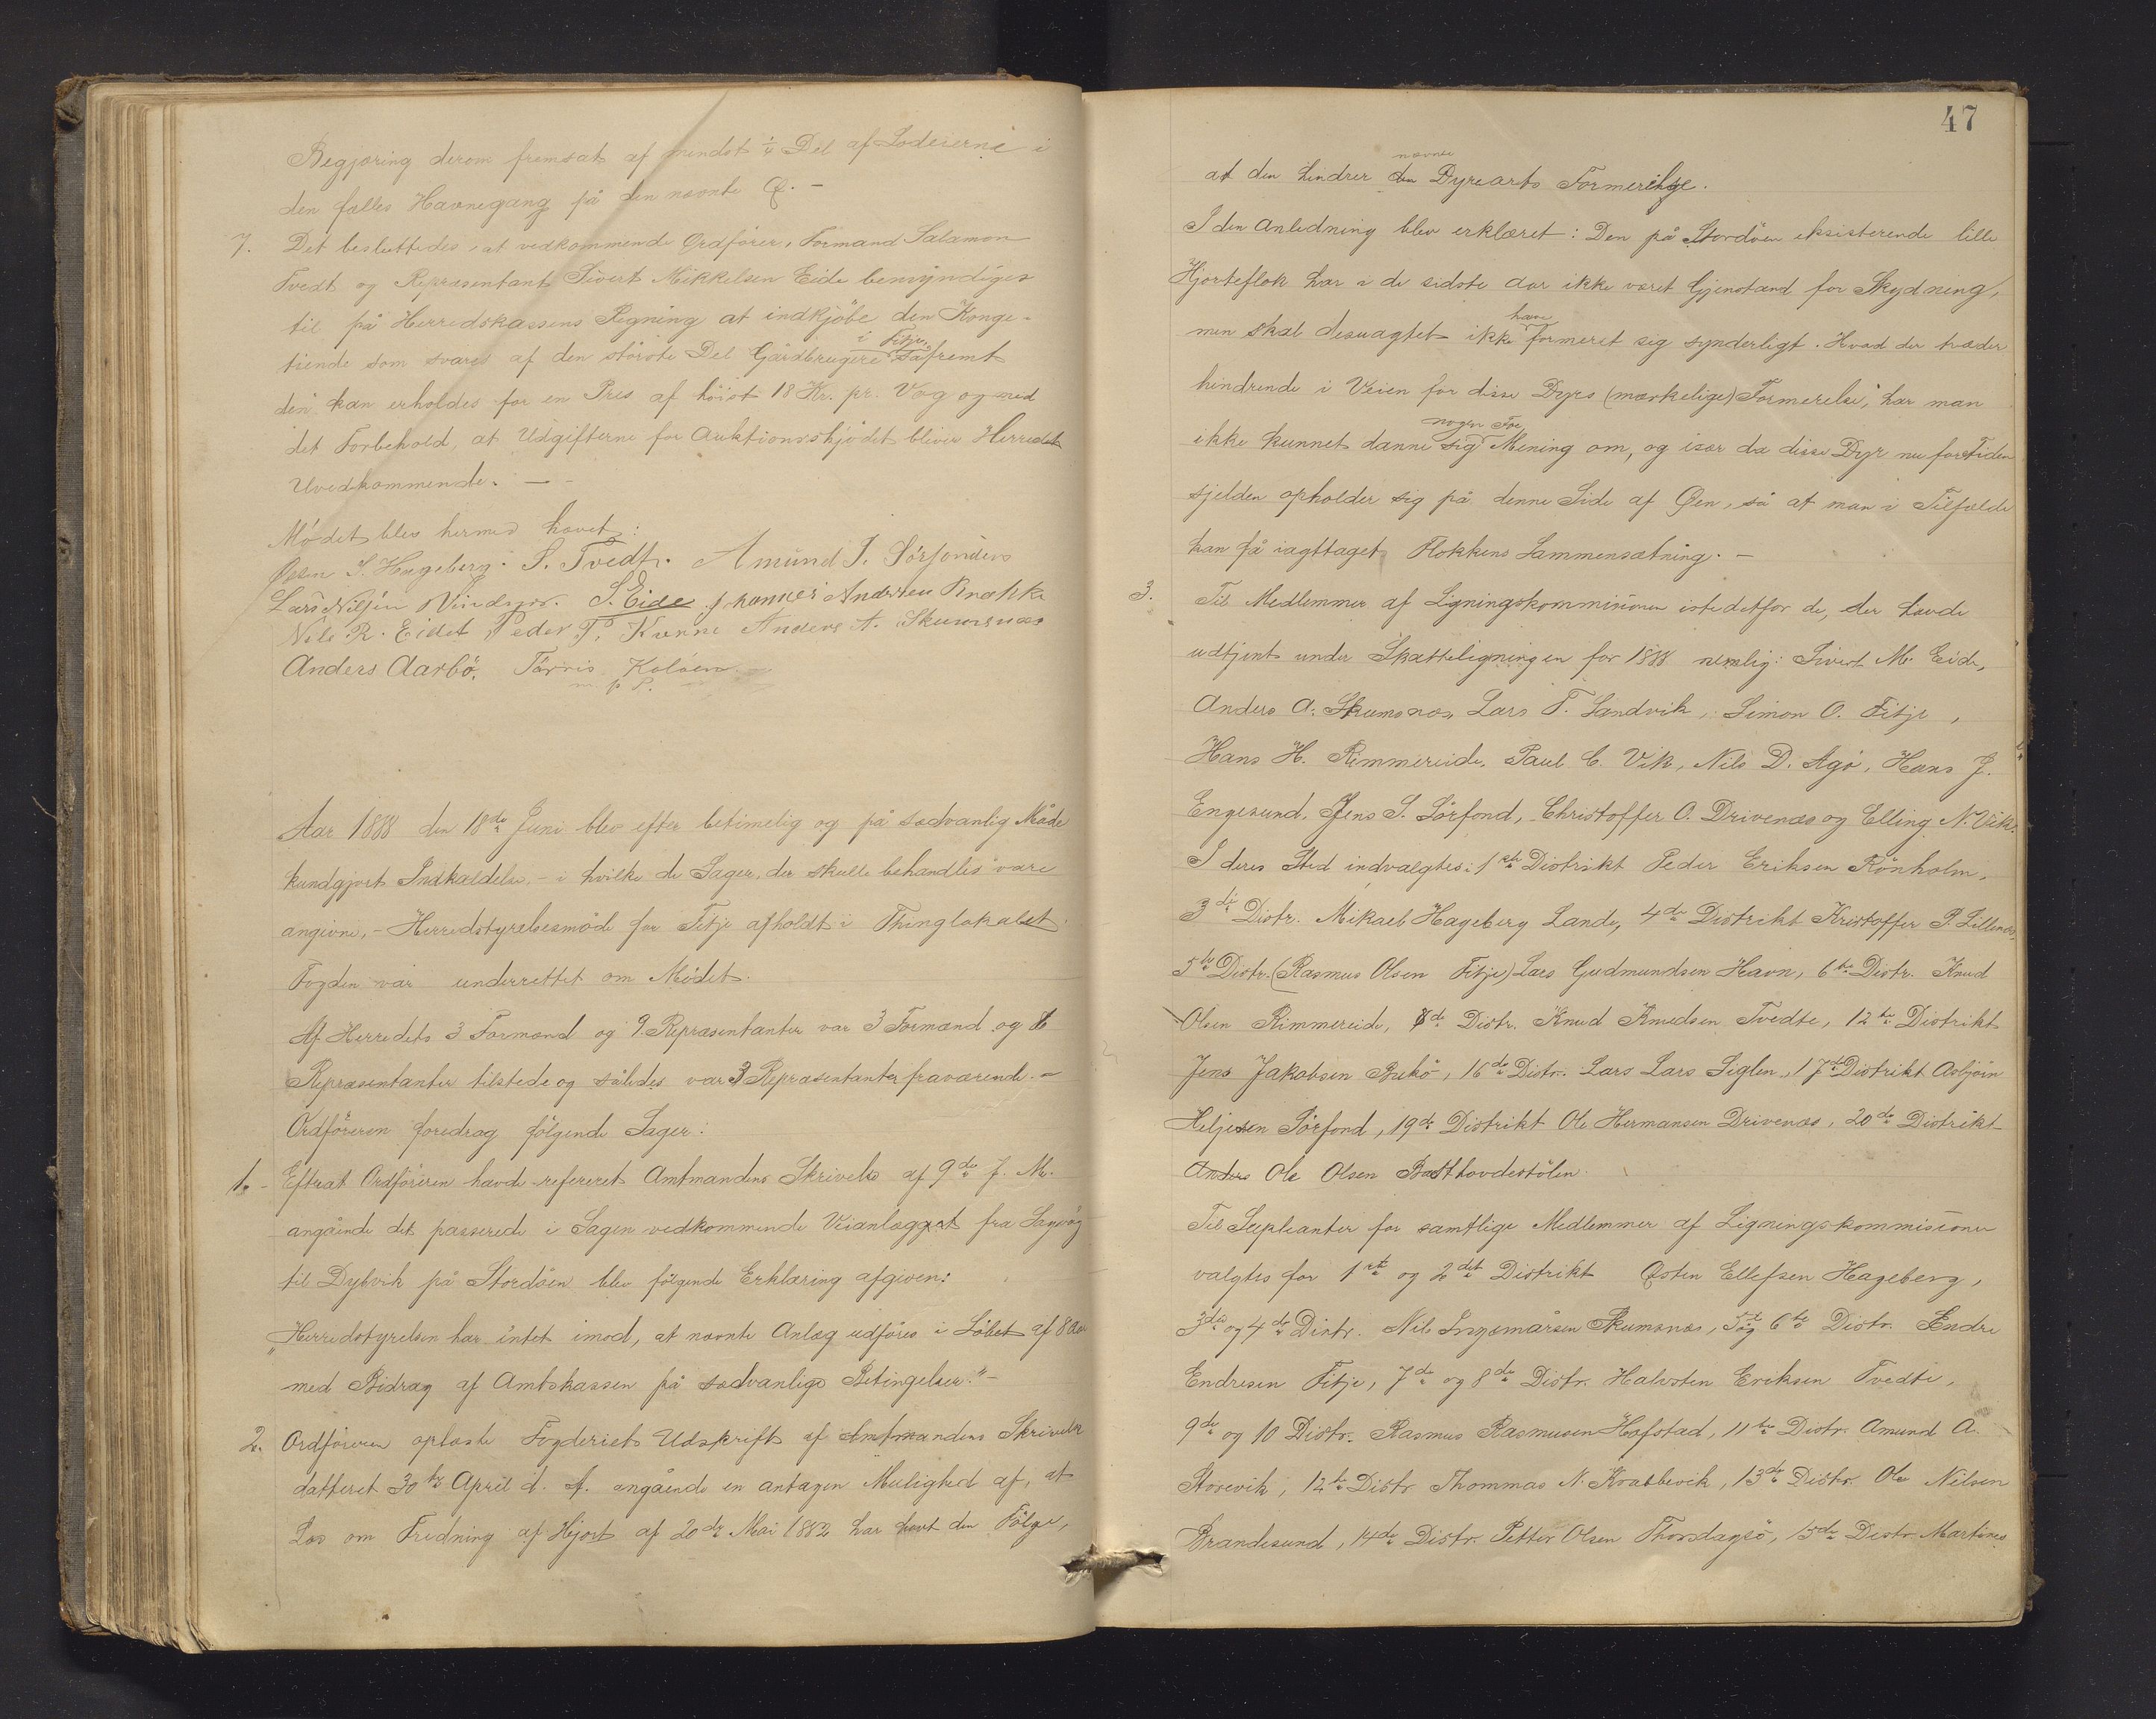 Begjæring derom fremsat af mindst ¼ Del af Lodeierne i
den fælles Havnegang på den nævnte Ø. –
7. Det besluttedes, at vedkommende Ordfører, Formand Salamon
Tvedt og Repræsentant Sivert Mikkelsen Eide bemyndiges
til på Herredskassens Regning at indkjöbe den Konge-
tiende som svares af den störste Del Gårdbrugere i Fitje såfremt
den kan erholdes for en Pris af höist 18 Kr. pr. Vog og med
det Forbehold, at Udgifterne for Auktionsskjödet bliver Herredet
Uvedkommende. –
Mödet blev hermed hævet:
Östen S. Hageberg. S. Tvedt. Amund J. Sörfonden
Lars Nilsen Vindspor. S. Eide Johannes Andersen Brække
Nils R. Eidet Peder T. Kvenne Anders A. Skumsnæs
Anders Aarbö, Törris Kalöen
m. p. P.
Aar 1888 den 18de Juni blev efter betimelig og på sædvanlig Måde
kundgjort Indkaldelse, – i hvilke de Sager, der skulle behandles vare
angivne, – Herredstyrelsesmöde for Fitje afholdt i Thinglokalet.
Fogden var underrettet om Mödet.
Af Herredets 3 Formænd og 9 Repræsentanter var 3 Formænd og 6
Repræsentanter tilstede og således var 3 Repræsentanter fraværende. –
Ordföreren foredrog fölgende Sager:
1. – Efterat Ordföreren havde refereret Amtmandens Skrivelse af 9de f. M.
angående det passerede i Sagen vedkommende Veianlægget fra Sagvåg
til Dybvik på Stordöen blev fölgende Erklæring afgiven:
„Herredstyrelsen har intet imod, at nævnte Anlæg udföres i Löbet af 8 Aar
med Bidrag af Amtskassen på sædvanlige Betingelser." –
2. Ordföreren oplæste Fogderiets Udskrift af Amtmandens Skrivelse
datteret 30te April d. A. angående en antagen Mulighed af, at
Lov om Fredning af Hjort af 20de Mai 1882 har havt den Fölge,
47
at den hindrer den nævnte Dyrearts Formerelse.
I den Anledning blev erklæret: Den på Stordöen eksisterende lille
Hjorteflok har i de sidste Aar ikke været Gjenstand for Skydning,
men skal desuagtet ikke have formeret sig synderligt. Hvad der træder
hindrende i Veien for disse Dyrs (mærkelige) Formerelse, har man
ikke kunnet danne sig nogen For Mening om, og især da disse Dyr nu for Tiden
sjelden opholder sig på denne Side af Öen, så at man i Tilfælde
kan få iagttaget Flokkens Sammensætning. –
3. Til Medlemmer af Ligningskommisionen istedetfor de, der havde
udtjent under Skatteligningen for 1888 nemlig: Sivert M. Eide,
Anders A. Skumsnæs, Lars T. Sandvik, Simon O. Fitje,
Hans H. Rimmereide, Paul C. Vik, Nils D. Agö, Hans J.
Engesund, Jens S. Sörfond, Christoffer O. Drivenæs og Elling N. Vik.
I deres Sted indvalgtes: 1ste Distrikt Peder Eriksen Rönholm,
3die Distr. Mikael Hageberg Lande, 4de Distrikt Kristoffer P. Lillenæs,
5te Distr. (Rasmus Olsen Fitje) Lars Gudmundsen Havn, 6te Distr. Knud
Olsen Rimmereide, 8de Distr. Knud Knudsen Tvedte, 12te Distrikt
Jens Jakobsen Bukö, 16de Distr. Lars Lars Siglen, 17de Distrikt Asbjörn
Heljesen Sörfond, 19de Distrikt Ole Hermansen Drivenæs, 20de Distrikt
Anders Ole Olsen Botthovdestölen.
Til Supleanter for samtlige Medlemmer af Ligningskommisionen
valgtes for 1ste og 2det Distrikt Östen Ellefsen Hageberg,
3die og 4de Distr. Nils Ingemårsen Skumsnæs, 5te og 6te Distr. Endre
Endresen Fitje, 7de og 8de Distr. Halvsten Eriksen Tvedte,
9de og 10 Distr. Rasmus Rasmusen Hofstad, 11te Distr. Amund A.
Storevik, 12te Distr. Thommas N. Krabbevik, 13de Distr. Ole Nilsen
Brandesund, 14de Distr. Petter Olsen Thorsdagsö, 15de Distr. Martines